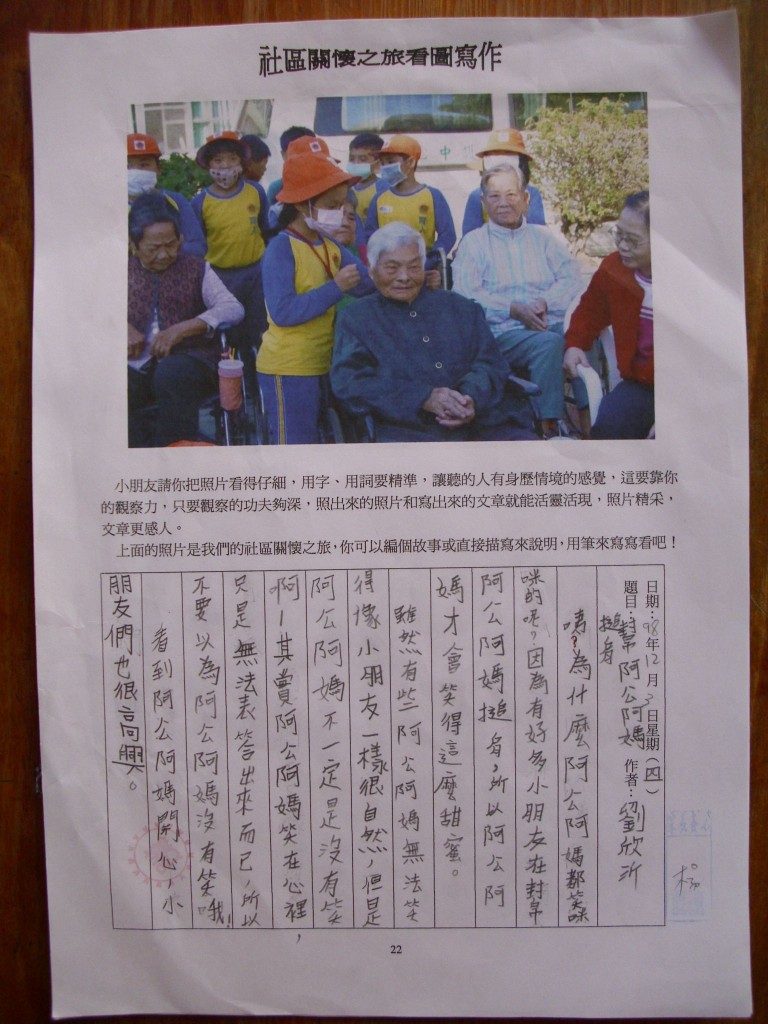 社區關懷之旅看圖寫作
中
小朋友請你把照片看得仔細，用字、用詞要精準，讓聽的人有身歷情境的感覺，這要靠你
的觀察力，只要觀察的功夫夠深，照出來的照片和寫出來的文章就能活靈活現，照片精采，
文章更感人。
上面的照片是我們的社區關懷之旅，你可以編個故事或直接描寫來說明，用筆來寫寫看吧！
日期：98年12月3日星期（四）
題目：幫阿公阿媽搥背 作者：劉欣沂
咦？為什麼阿公阿媽都笑咪
咪的呢？因為有好多小朋友在幫
阿公阿媽搥背，所以阿公阿
媽才會笑得這麼甜蜜。
雖然有些阿公阿媽無法笑
得像小朋友一樣很自然，但是
阿公阿媽不一定是沒有笑
啊！其實阿公阿媽笑在心裡，
只是無法表答出來而已，所以
不要以為阿公阿媽沒有笑哦！
看到阿公阿媽開心，小
朋友們也很高興。
22